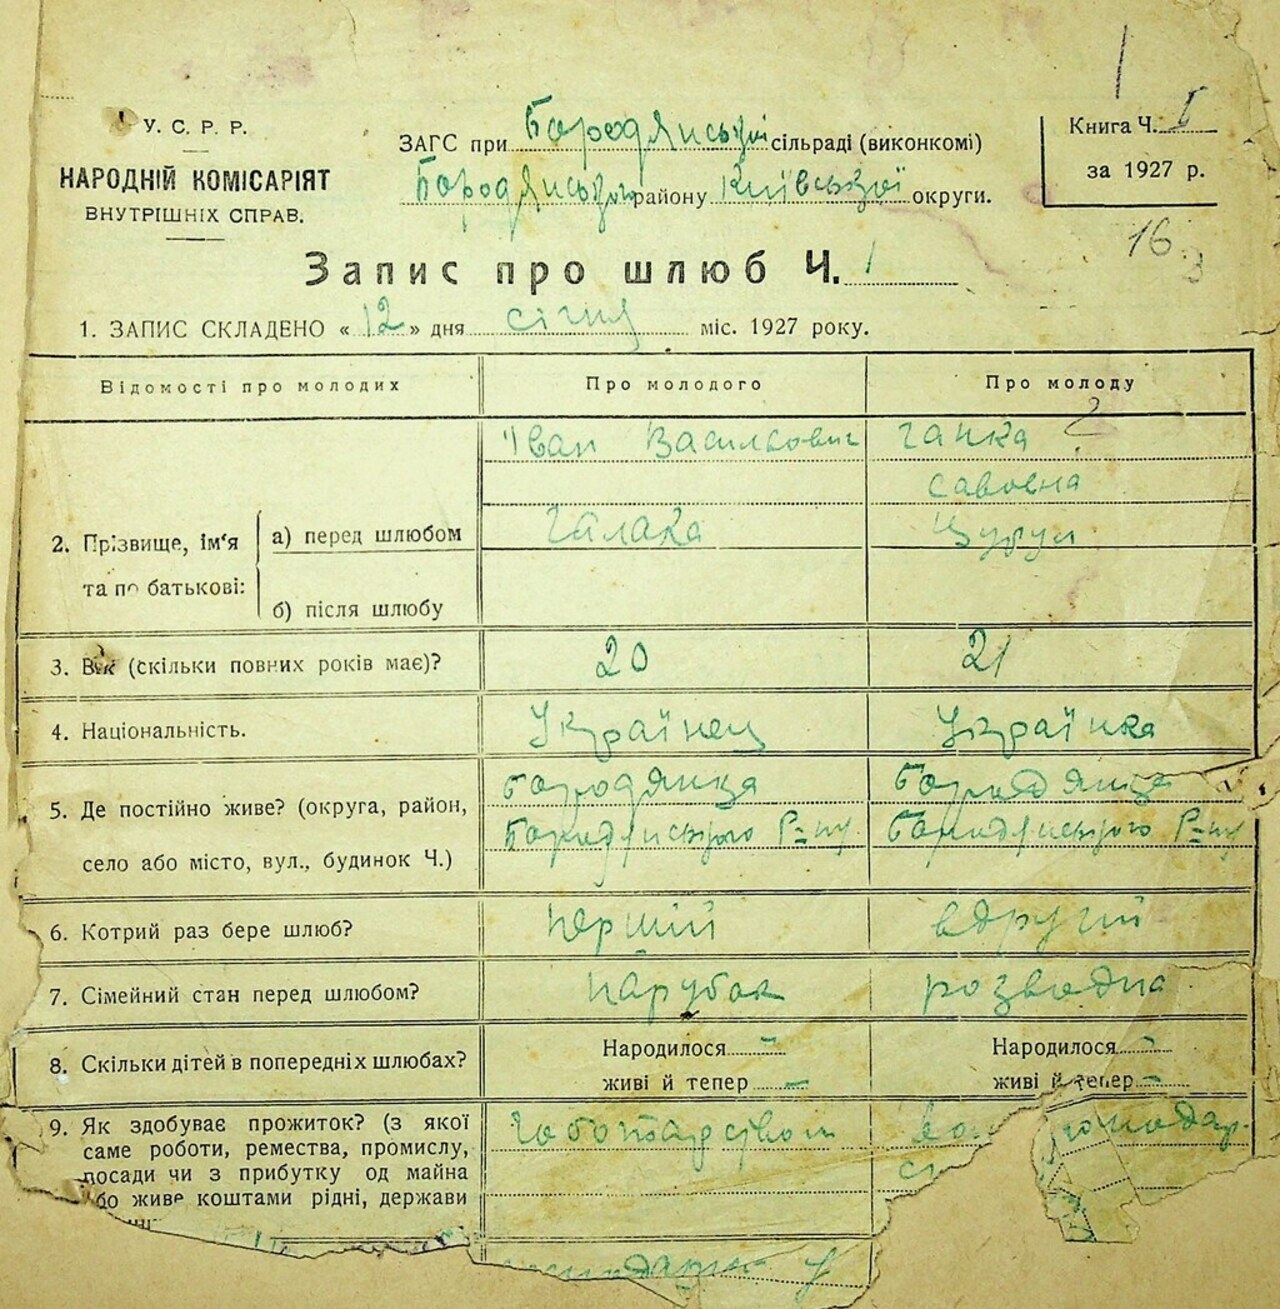 У. С. Р. Р.
НАРОДНІЙ КОМІСАРІЯТ
ВНУТРІШНІХ СПРАВ.
ЗАГС при Бородянській сільраді (виконкомі)
Бородянського району Київської округи.
Книга Ч. I
за 1927 р.
16
3
Запис про шлюб Ч. 1
1. ЗАПИС СКЛАДЕНО « 12 » дня січня міс. 1927 року.
Відомості про молодих Про молодого Про молоду
Іван Васильович Ганка ?
Савовна
2. Прізвище, ім'я та по батькові: а) перед шлюбом Галака
б) після шлюбу
3. Вік (скільки повних років має)? 20 21
4. Національність. Українец Українка
5. Де постійно живе? (округа, район, Бородянка Бородянка
село або місто, вул., будинок Ч.) Бородянського Р-ну Бородянського Р-ну
6. Котрий раз бере шлюб? перший вдругий
7. Сімейний стан перед шлюбом? парубок розводна
8. Скільки дітей в попередніх шлюбах? Народилося - Народилося -
живі й тепер - живі й тепер -
9. Як здобуває прожиток? (з якої
саме роботи, ремества, промислу,
посади чи з прибутку од майна
або живе коштами рідні, держави